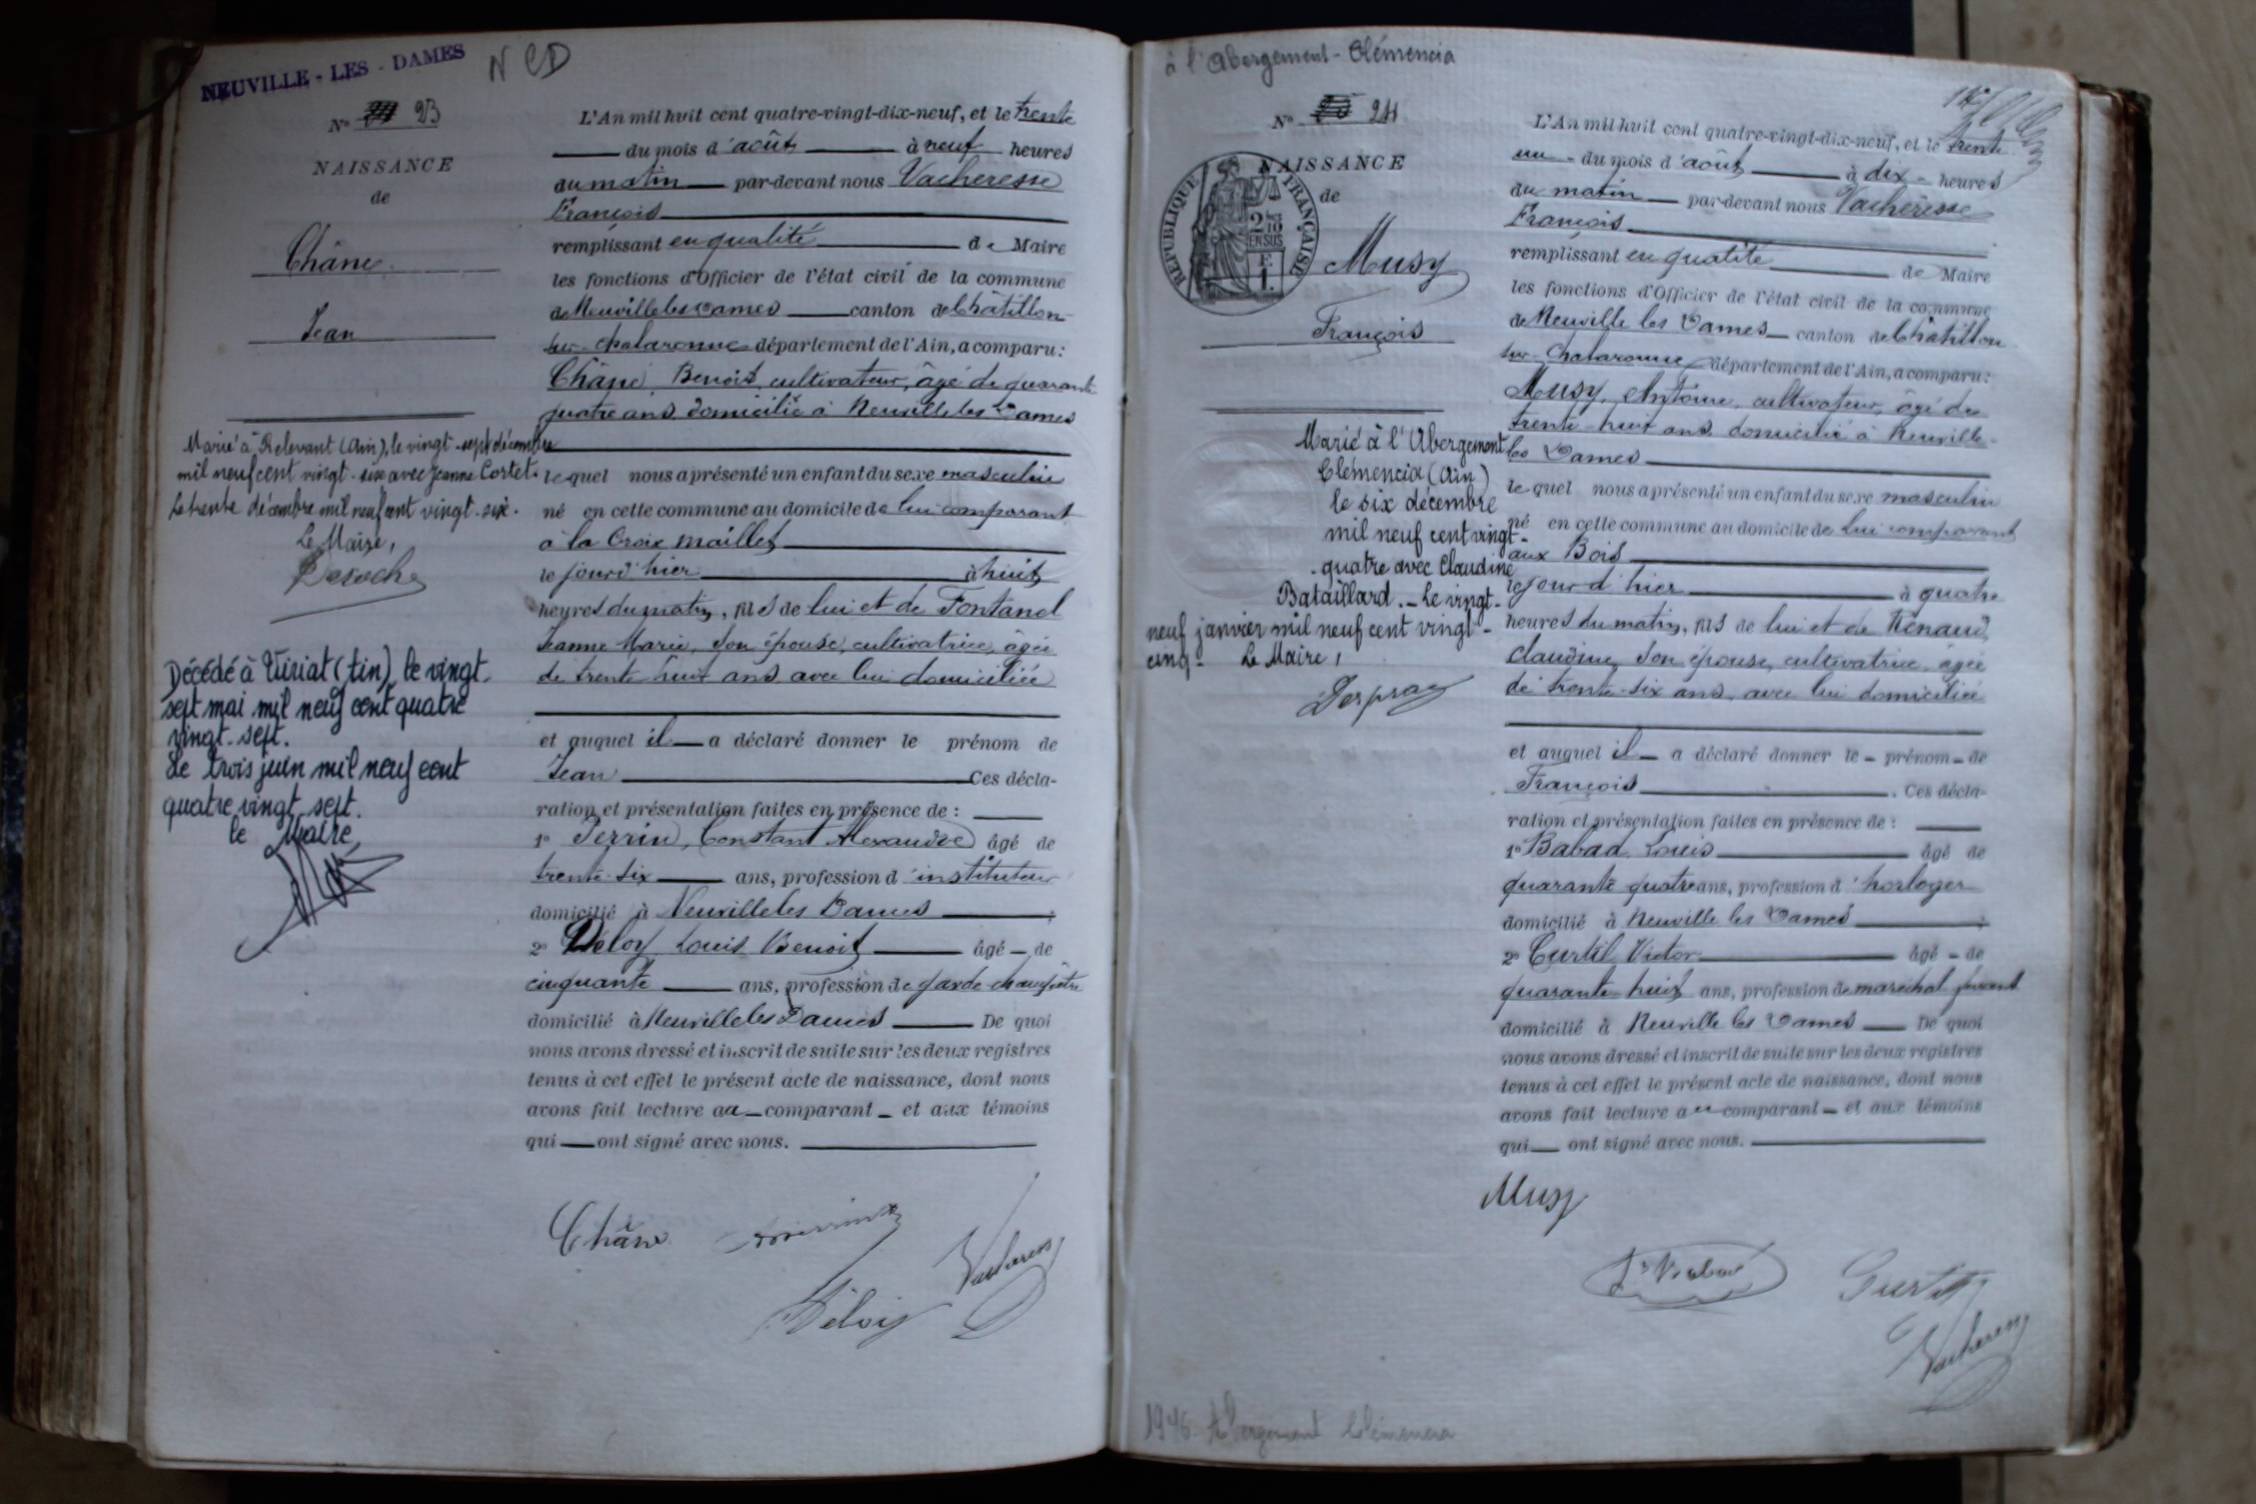 NEUVILLE-LES-DAMES
N CD
N° 23
NAISSANCE
de
Châne
Jean
Marié à Relevant (Ain), le vingt-sept décembre
mil neuf cent vingt-six avec Jeanne Cortet.
Le trente décembre mil neuf cent vingt-six.
Le Maire,
Décédé à Viriat (Ain), le vingt
sept mai mil neuf cent quatre
vingt-sept.
Le trois juin mil neuf cent
quatre vingt sept.
le Maire,
L'An mil huit cent quatre-vingt-dix-neuf, et le trente
du mois d'août à neuf heures
du matin par-devant nous Vacheresse
François
remplissant en qualité de Maire
les fonctions d'Officier de l'état civil de la commune
de Neuville les Dames canton de Châtillon
sur-Chalaronne département de l'Ain, a comparu:
Châne, Benoit, cultivateur, âgé de quarante
quatre ans domicilié à Neuville les Dames
lequel nous a présenté un enfant du sexe masculin
né en cette commune au domicile de lui comparant
à la Croix maillet
le jour d'hier à huit
heures du matin, fils de lui et de Fontanel
Jeanne Marie, son épouse, cultivatrice, âgée
de trente huit ans avec lui domiciliée
et auquel il a déclaré donner le prénom de
Jean Ces décla-
ration et présentation faites en présence de :
1° Perrin, Constant Alexandre âgé de
trente-six ans, profession d'instituteur
domicilié à Neuville les Dames ;
2° Déloy Louis Benoit âgé de
cinquante ans, profession de garde champêtre
domicilié à Neuville les Dames De quoi
nous avons dressé et inscrit de suite sur les deux registres
tenus à cet effet le présent acte de naissance, dont nous
avons fait lecture au comparant et aux témoins
qui ont signé avec nous.
Châne
à l'Abergement-Clémencia
N° 24
NAISSANCE
de
RÉPUBLIQUE FRANÇAISE
Musy
François
Marié à l'Abergement
Clémencia (Ain)
le six décembre
mil neuf cent vingt-
quatre avec Claudine
Bataillard. - Le vingt-
neuf janvier mil neuf cent vingt-
cinq. Le Maire,
L'An mil huit cent quatre-vingt-dix-neuf, et le trente
un du mois d'août à dix heures
du matin par-devant nous Vacheresse
François
remplissant en qualité de Maire
les fonctions d'Officier de l'état civil de la commune
de Neuville les Dames canton de Châtillon
sur-Chalaronne département de l'Ain, a comparu:
Musy, Antoine, cultivateur, âgé de
trente-huit ans domicilié à Neuville-
les Dames
lequel nous a présenté un enfant du sexe masculin
né en cette commune au domicile de lui comparant
aux Bois
le jour d'hier à quatre
heures du matin, fils de lui et de Renaud,
Claudine, son épouse, cultivatrice, âgée
de trente-six ans, avec lui domiciliée
et auquel il a déclaré donner le prénom de
François. Ces décla-
ration et présentation faites en présence de :
1° Babad, Louis âgé de
quarante quatre ans, profession d'horloger
domicilié à Neuville les Dames ;
2° Curtil Victor âgé de
quarante-huit ans, profession de maréchal ferrant
domicilié à Neuville les Dames De quoi
nous avons dressé et inscrit de suite sur les deux registres
tenus à cet effet le présent acte de naissance, dont nous
avons fait lecture au comparant et aux témoins
qui ont signé avec nous.
Musy
1946 Abergement Clémencia